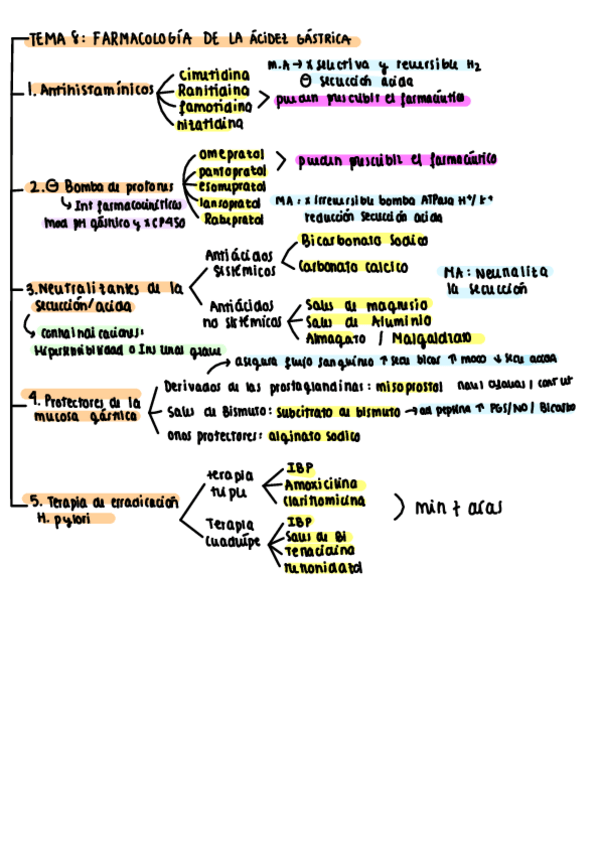 TEMA 8: FARMACOLOGÍA DE LA ÁCIDEZ GÁSTRICA
1. Antihistamínicos
cimetidina
Ranitidina
famotidina
nizatidina
M.A → x selectiva y reversible H2
⊖ secucción ácida
pueden prescribir el farmacéutico
2. ⊖ Bomba de protones
↳ Int farmacocinéticas
Mod pH gástrico y x CP450
omeprazol
pantoprazol
esomeprazol
lansoprazol
Rabeprazol
pueden prescribir el farmacéutico
MA: x irreversible bomba ATPasa H+/K+
reducción secucción acida
3. Neutralizantes de la
secucción/acida
↳ contraindicaciones:
Hipersensibilidad o Ins renal grave
Antiácidos
sistémicos
Bicarbonato sodico
Carbonato calcico
Antiácidos
no sistémicos
Sales de magnesio
Sales de Aluminio
Almagato / Malgaldrato
MA: Neutraliza
la secucción
→ asegura flujo sanguíneo ↑ secu bicar ↑ moco ↓ secu acida
4. Protectores de la
mucosa gástrica
Derivados de las prostaglandinas: misoprostol
Sales de Bismuto: subcitrato de bismuto → ad pepsina ↑ PGS/NO/ Bicarbo
otros protectores: alginato sodico
5. Terapia de erradicación
H. pylori
terapia
triple
IBP
Amoxicilina
claritromicina
Terapia
cuádruple
IBP
Sales de Bi
Tetraciclina
metronidazol
min 7 días